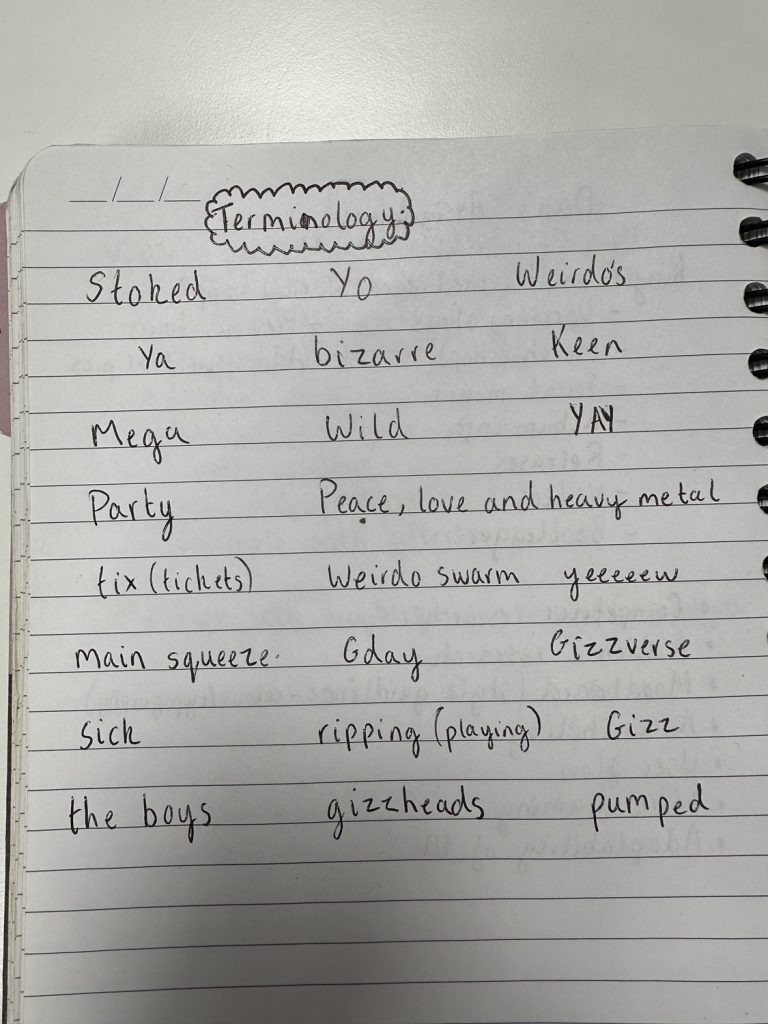 __/__/__
Terminology:
Stoked Yo Weirdo's
Ya bizarre Keen
Mega Wild YAY
Party Peace, love and heavy metal
tix (tickets) Weirdo swarm yeeeeew
main squeeze. Gday Gizzverse
sick ripping (playing) Gizz
the boys gizzheads pumped